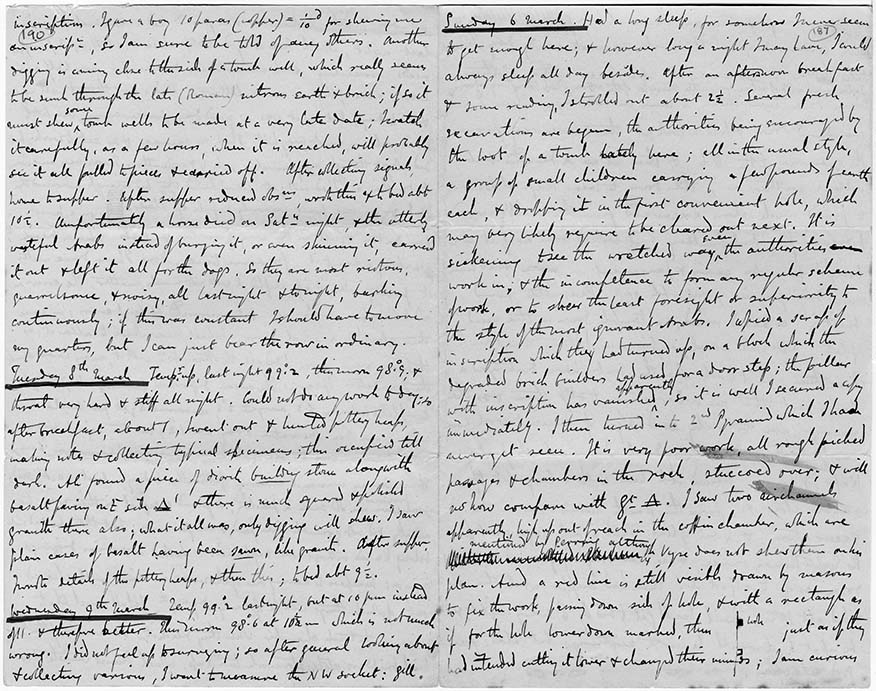 (190)
inscription. I gave a boy 10 paras (copper) = 1/10 d for shewing me
an inscriptn, so I am sure to be told of any others. Another
digging is coming close to the side of a tomb well, which really seems
to be sunk through the late (Roman) nitrous earth & brick; if so it
must shew some tomb wells to be made at a very late date; I watch
it carefully, as a few hours, when it is reached, will probably
see it all pulled to pieces & carried off. After collecting signals
home to supper. After supper reduced obsns, wrote this & to bed abt
10½. Unfortunately a horse died on Saty night, & the utterly
wasteful Arabs instead of burying it, or even skinning it, carried
it out & left it all for the dogs. So they are most riotous,
quarrelsome, & noisy, all last night & tonight, barking
continuously; if this was constant I should have to move
my quarters, but I can just bear the row in ordinary.
Tuesday 8th March Temp. up, last night 99°.2 this morn 98°.9; &
throat very hard & stiff all night. Could not do any work today; so
after breakfast, about 1, I went out & hunted pottery heaps,
making notes & collecting typical specimens; this occupied till
dark. Ali found a piece of diorite building stone along with
basalt paving on E side Δ1 & there is much squared & polished
granite there also; what it all was, only digging will shew. I saw
plain cases of basalt having been sawn, like granite. After supper.
I wrote details of the pottery heaps, & then this; to bed abt 9½.
Wednesday 9th March Temp 99°.2 last night, but at 10 pm instead
of 11. & therefore better. This morn 98°.6 at 10½ am which is not much
wrong. I did not feel up to surveying; so after general looking about
& collecting various, I went to measure the NW socket: Gill.
(187)
Sunday 6 March. Had a long sleep, for somehow I never seem
to get enough here; & however long a night I may have, I could
always sleep all day besides. After an afternoon breakfast
& some reading, I strolled out about 2½. Several fresh
excavations are begun, the authorities being encouraged by
the loot of a tomb lately here; all in the usual style,
a group of small children carrying a few pounds of earth
each, & dropping it in the first convenient hole, which
may very likely require to be cleared out next. It is
sickening to see the wretched way even the authorities
work in; & the incompetence to form any regular scheme
of work, or to shew the least foresight or superiority to
the style of the most ignorant Arabs. I copied a scrap of
inscription which they had turned up, on a block which the
degraded brick builders had used for a door step; the pillar
with inscription has apparently vanished, so it is well I secured a copy
immediately. I then turned in to 2nd Pyramid which I had
never yet seen. It is very poor work, all rough picked
passages & chambers in the rock, stuccoed over; & will
no how compare with gt Δ. I saw two airchannels
apparently, high up out of reach in the coffin chamber, which are
mentioned by Perring altho'
Vyse does not shew them on his
plan. And a red line is still visible drawn by masons
to fix the work, passing down side of hole, & with a rectangle as
if for the hole lower down marked, thus hole just as if they
had intended cutting it lower & changed their minds; I am curious